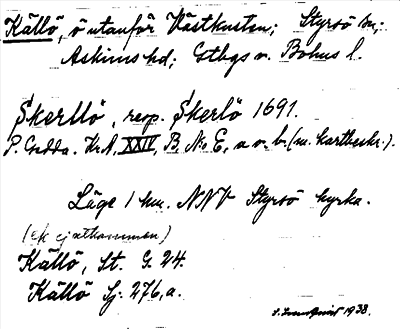 Källö, ö utanför Västkusten; Styrsö sn;
Askims hd; Gtbgs o. Bohus l.
Skerllö, resp. Skerlö 1691.
P. Gedda. Kr.A. XXIV, B. No E, a o. b. (m. kartbeskr.).
Läge 1 km. NNV Styrsö kyrka.
(ek ej utkommen)
Källö, St. G. 24.
Källö Sj. 276,a.
1938.